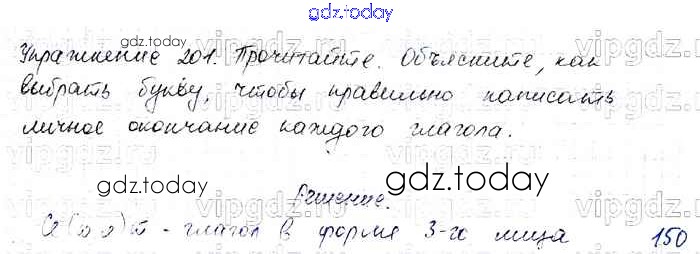 gdz.today
Упражнение 201. Прочитайте. Объясните, как
gdz.today
выбрать букву, чтобы правильно написать
личное окончание каждого глагола.
vipgdz.ru
gdz.today
gdz.today
Решение.
- глагол в форме 3-го лица
150